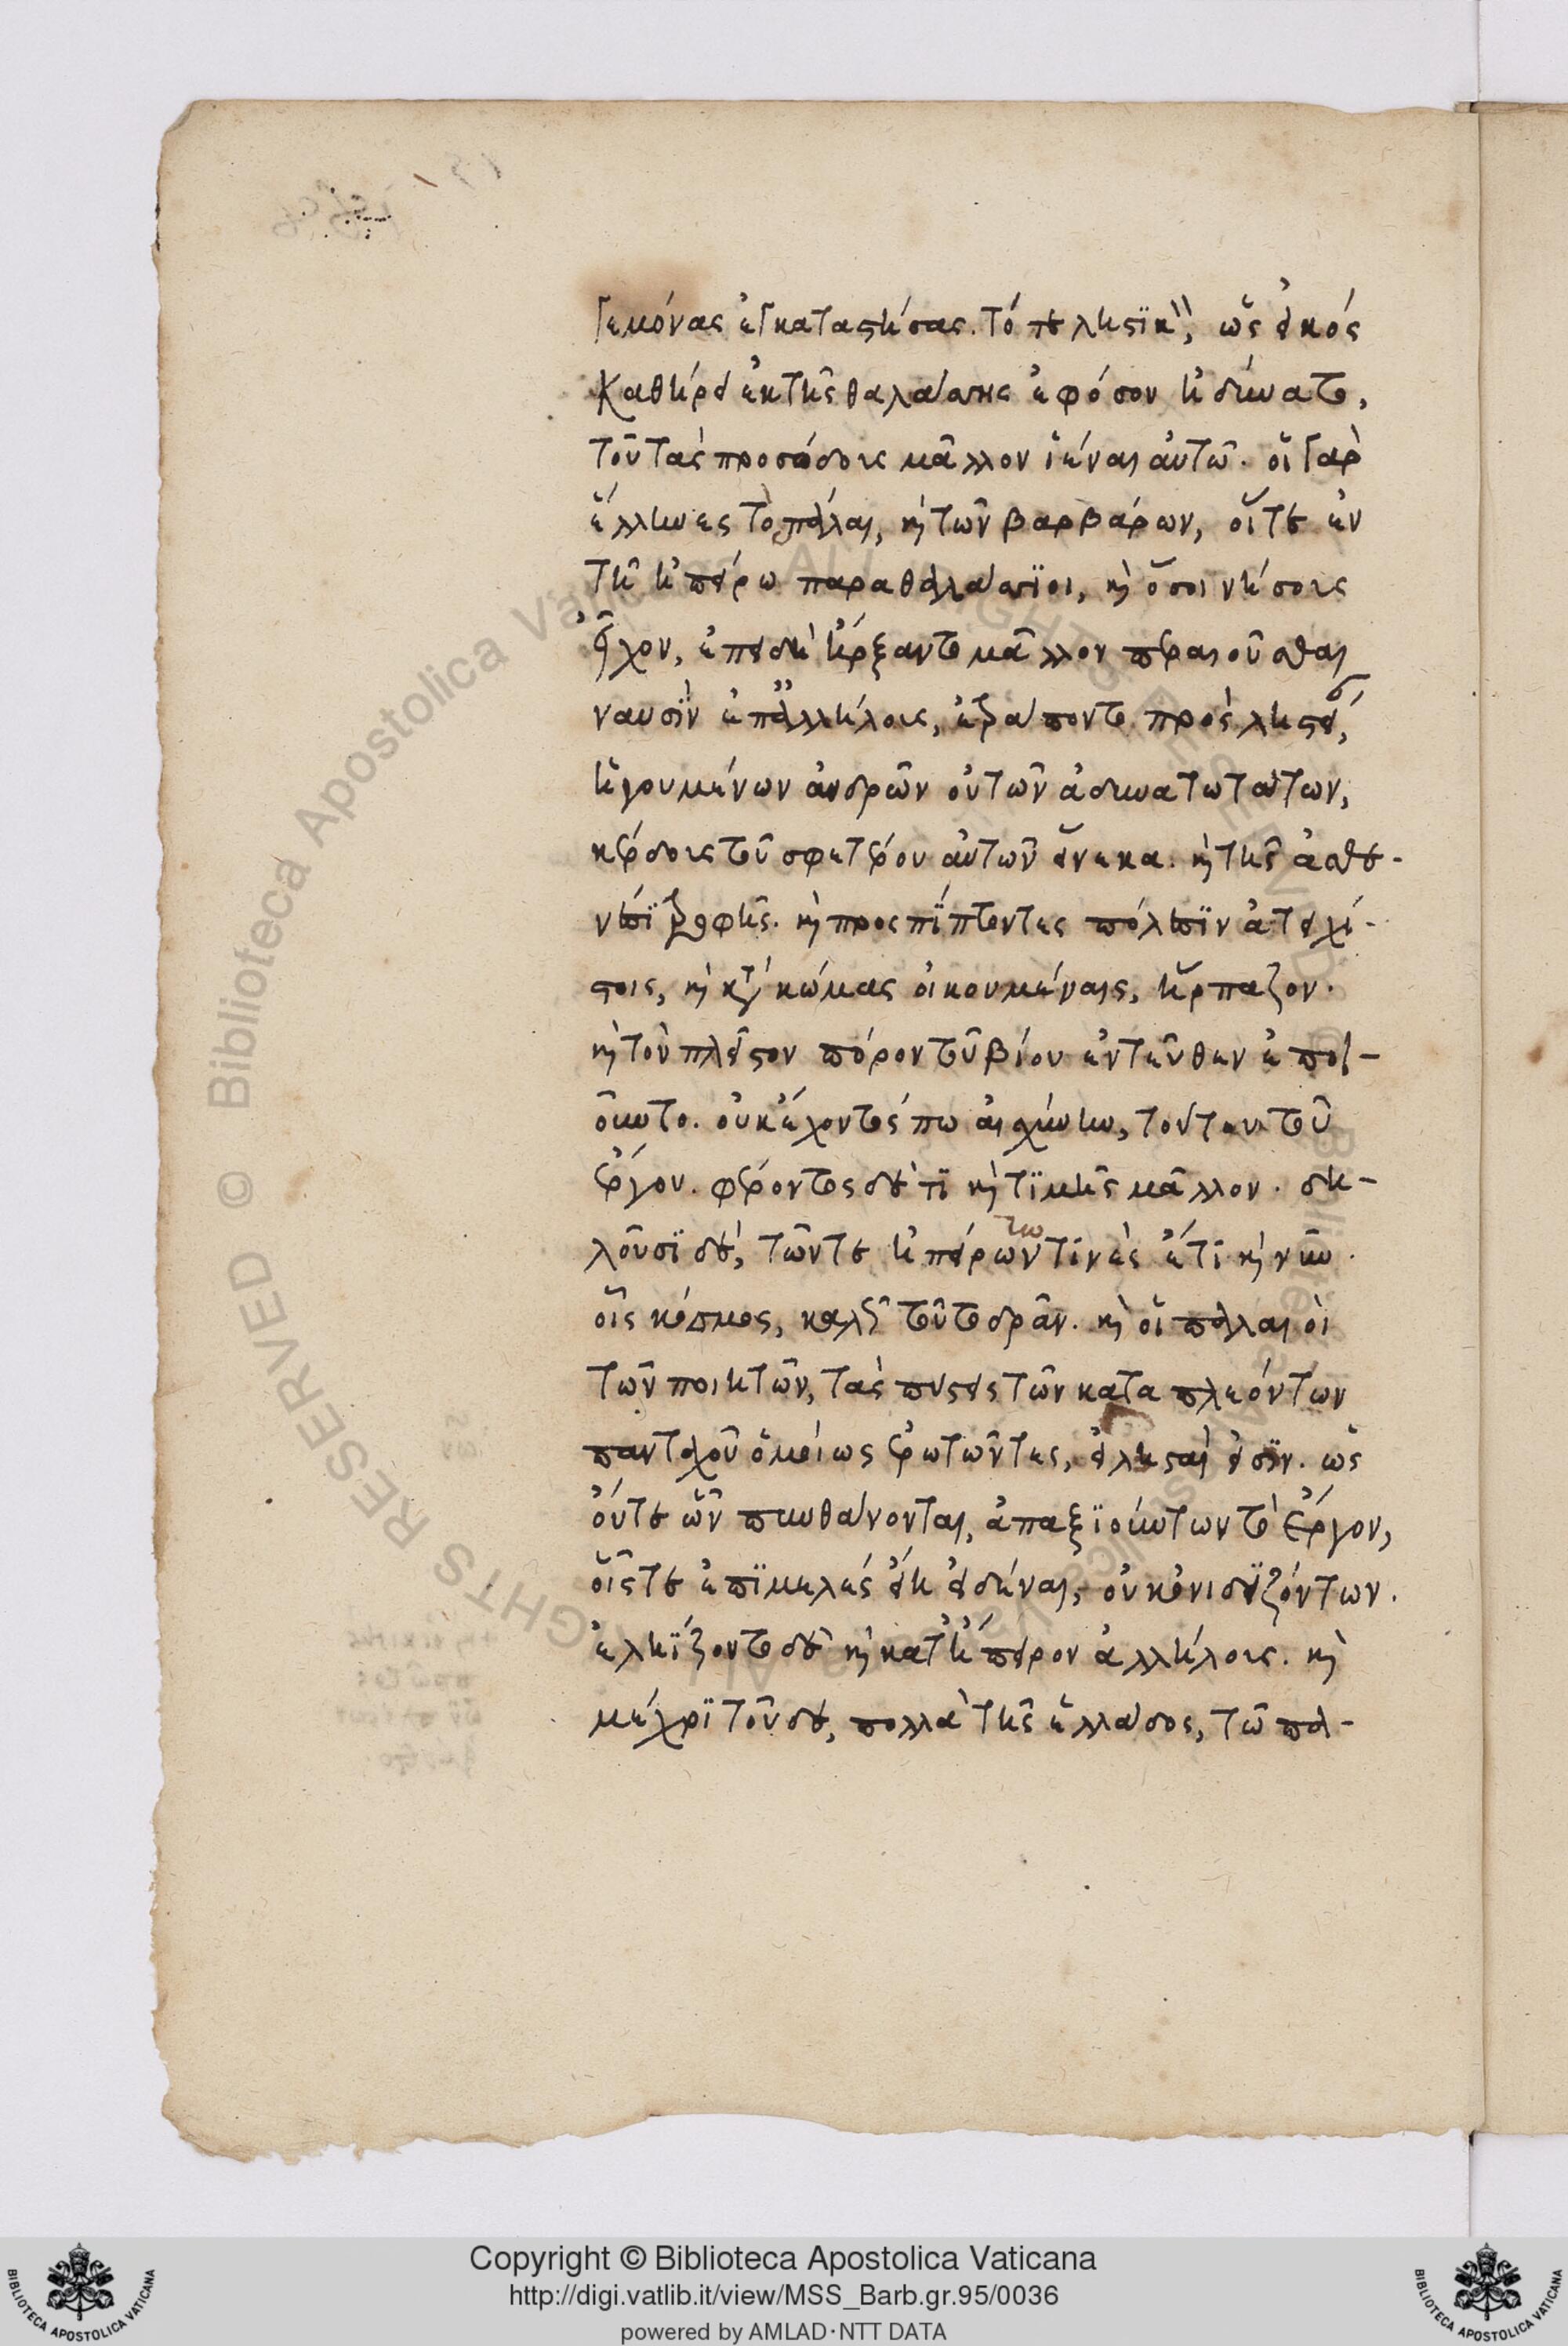 γεμόνας ἐγκαταστήσας. τό τε ληστικὸν, ὡς εἰκός
καθήρει ἐκ τῆς θαλάσσης ἐφόσον ἠδύνατο,
τοῦ τὰς προσόδους μᾶλλον ἰέναι αὐτῶ. οἱ γὰρ
ἕλληνες τοπάλαι, καὶ τῶν βαρβάρων, οἵ τε ἐν
τῆ ἠπείρω παραθαλάσσιοι, καὶ ὅσοι νήσους
εἶχον, ἐπειδὴ ἤρξαντο μᾶλλον περαιοῦσθαι
ναυσὶν ἐπ' ἀλλήλους, ἐτράποντο πρὸς ληστείαν,
ἡγουμένων ἀνδρῶν οὐ τῶν ἀδυνατωτάτων,
κέρδους τοῦ σφετέρου αὐτῶν ἕνεκα. καὶ τῆς ἀσθε-
νέσι τροφῆς. καὶ προσπίπτοντες πόλεσιν ἀτειχί-
στοις, καὶ κατὰ κώμας οἰκουμέναις, ἥρπαζον.
καὶ τὸν πλεῖστον πόρον τοῦ βίου ἐντεῦθεν ἐποι-
οῦντο. οὐκ ἔχοντός πω αἰσχύνην, τούτου τοῦ
ἔργου. φέροντος δέ τι καὶ τιμῆς μᾶλλον. δη-
λοῦσι δέ, τῶν τε ἠπείρων τινὲς ἔτι καὶ νῦν.
οἷς κόσμος, καλῶς τοῦτο δρᾶν. καὶ οἱ παλαιοὶ
τῶν ποιητῶν, τὰς πύστεις τῶν καταπλεόντων
πανταχοῦ ὁμοίως ἐρωτῶντες, εἰ λησταὶ εἰσιν. ὡς
οὔτε ὧν πυνθάνονται, ἀπαξιούντων τὸ ἔργον,
οἷς τε ἐπιμελὲς εἴη εἰδέναι, οὐκ ὀνειδιζόντων.
ἐληίζοντο δὲ καὶ κατ' ἤπειρον ἀλλήλους. καὶ
μέχρι τοῦδε, πολλὰ τῆς ἑλλάδος, τῶ πα-
Copyright © Biblioteca Apostolica Vaticana
http://digi.vatlib.it/view/MSS_Barb.gr.95/0036
powered by AMLAD·NTT DATA